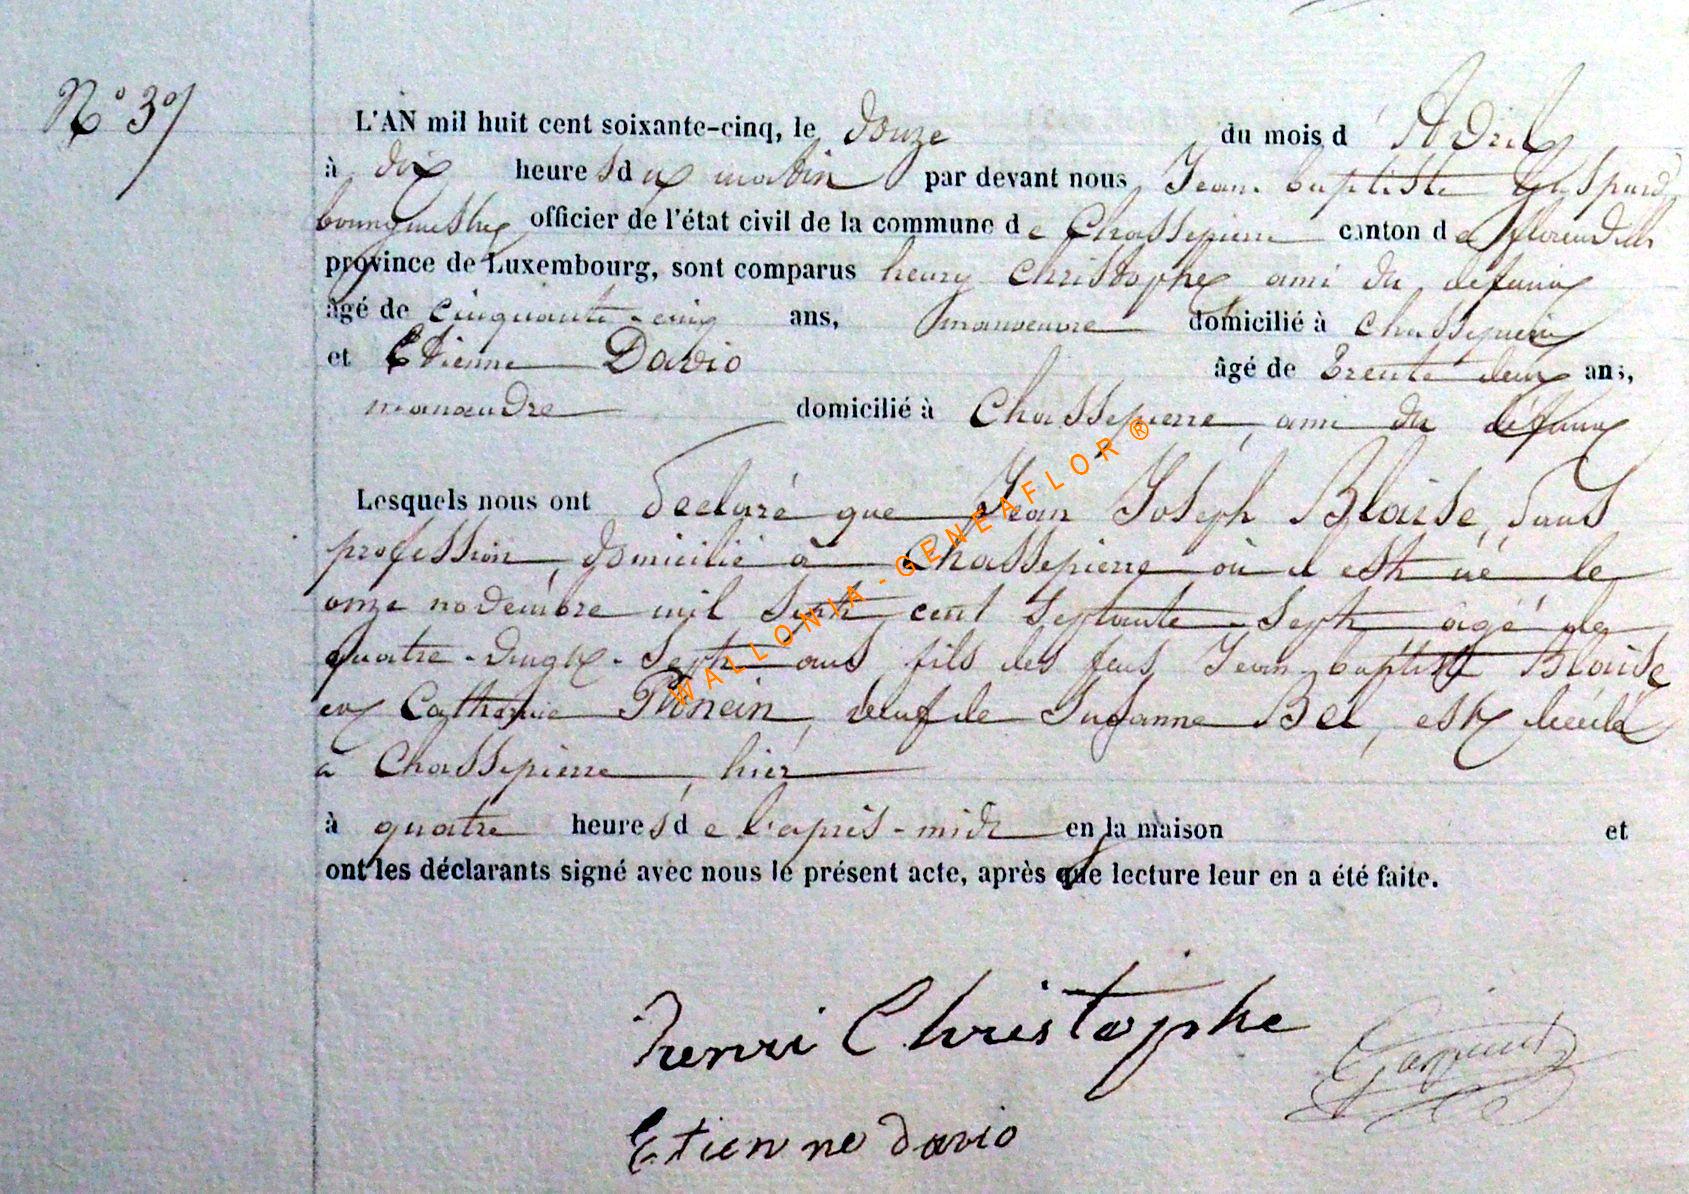 N° 37
L'AN mil huit cent soixante-cinq, le douze du mois d'Avril
à dix heures du matin par devant nous Jean baptiste Gaspard
bourgmestre officier de l'état civil de la commune de Chassepierre canton de florenville
province de Luxembourg, sont comparus henry Christophe ami du defunt
âgé de cinquante-cinq ans, manoeuvre domicilié à chassepierre
et Etienne Davio âgé de trente deux ans,
manoeuvre domicilié à Chassepierre, ami du défunt
Lesquels nous ont declaré que Jean Joseph Blaise, sans
profession, domicilié à Chassepierre où il est né le
onze novembre mil sept cent septante-sept âgé de
quatre-vingt-sept ans fils des feus Jean-baptiste Blaise
et Catherine veuf de Susanne Bel, est décédé
a Chassepierre, hier
à quatre heures de l'après-midi en la maison et
ont les déclarants signé avec nous le présent acte, après que lecture leur en a été faite.
henri Christophe
Gaspard
Etienne davio
WALLONIA-GENEAFLOR ®